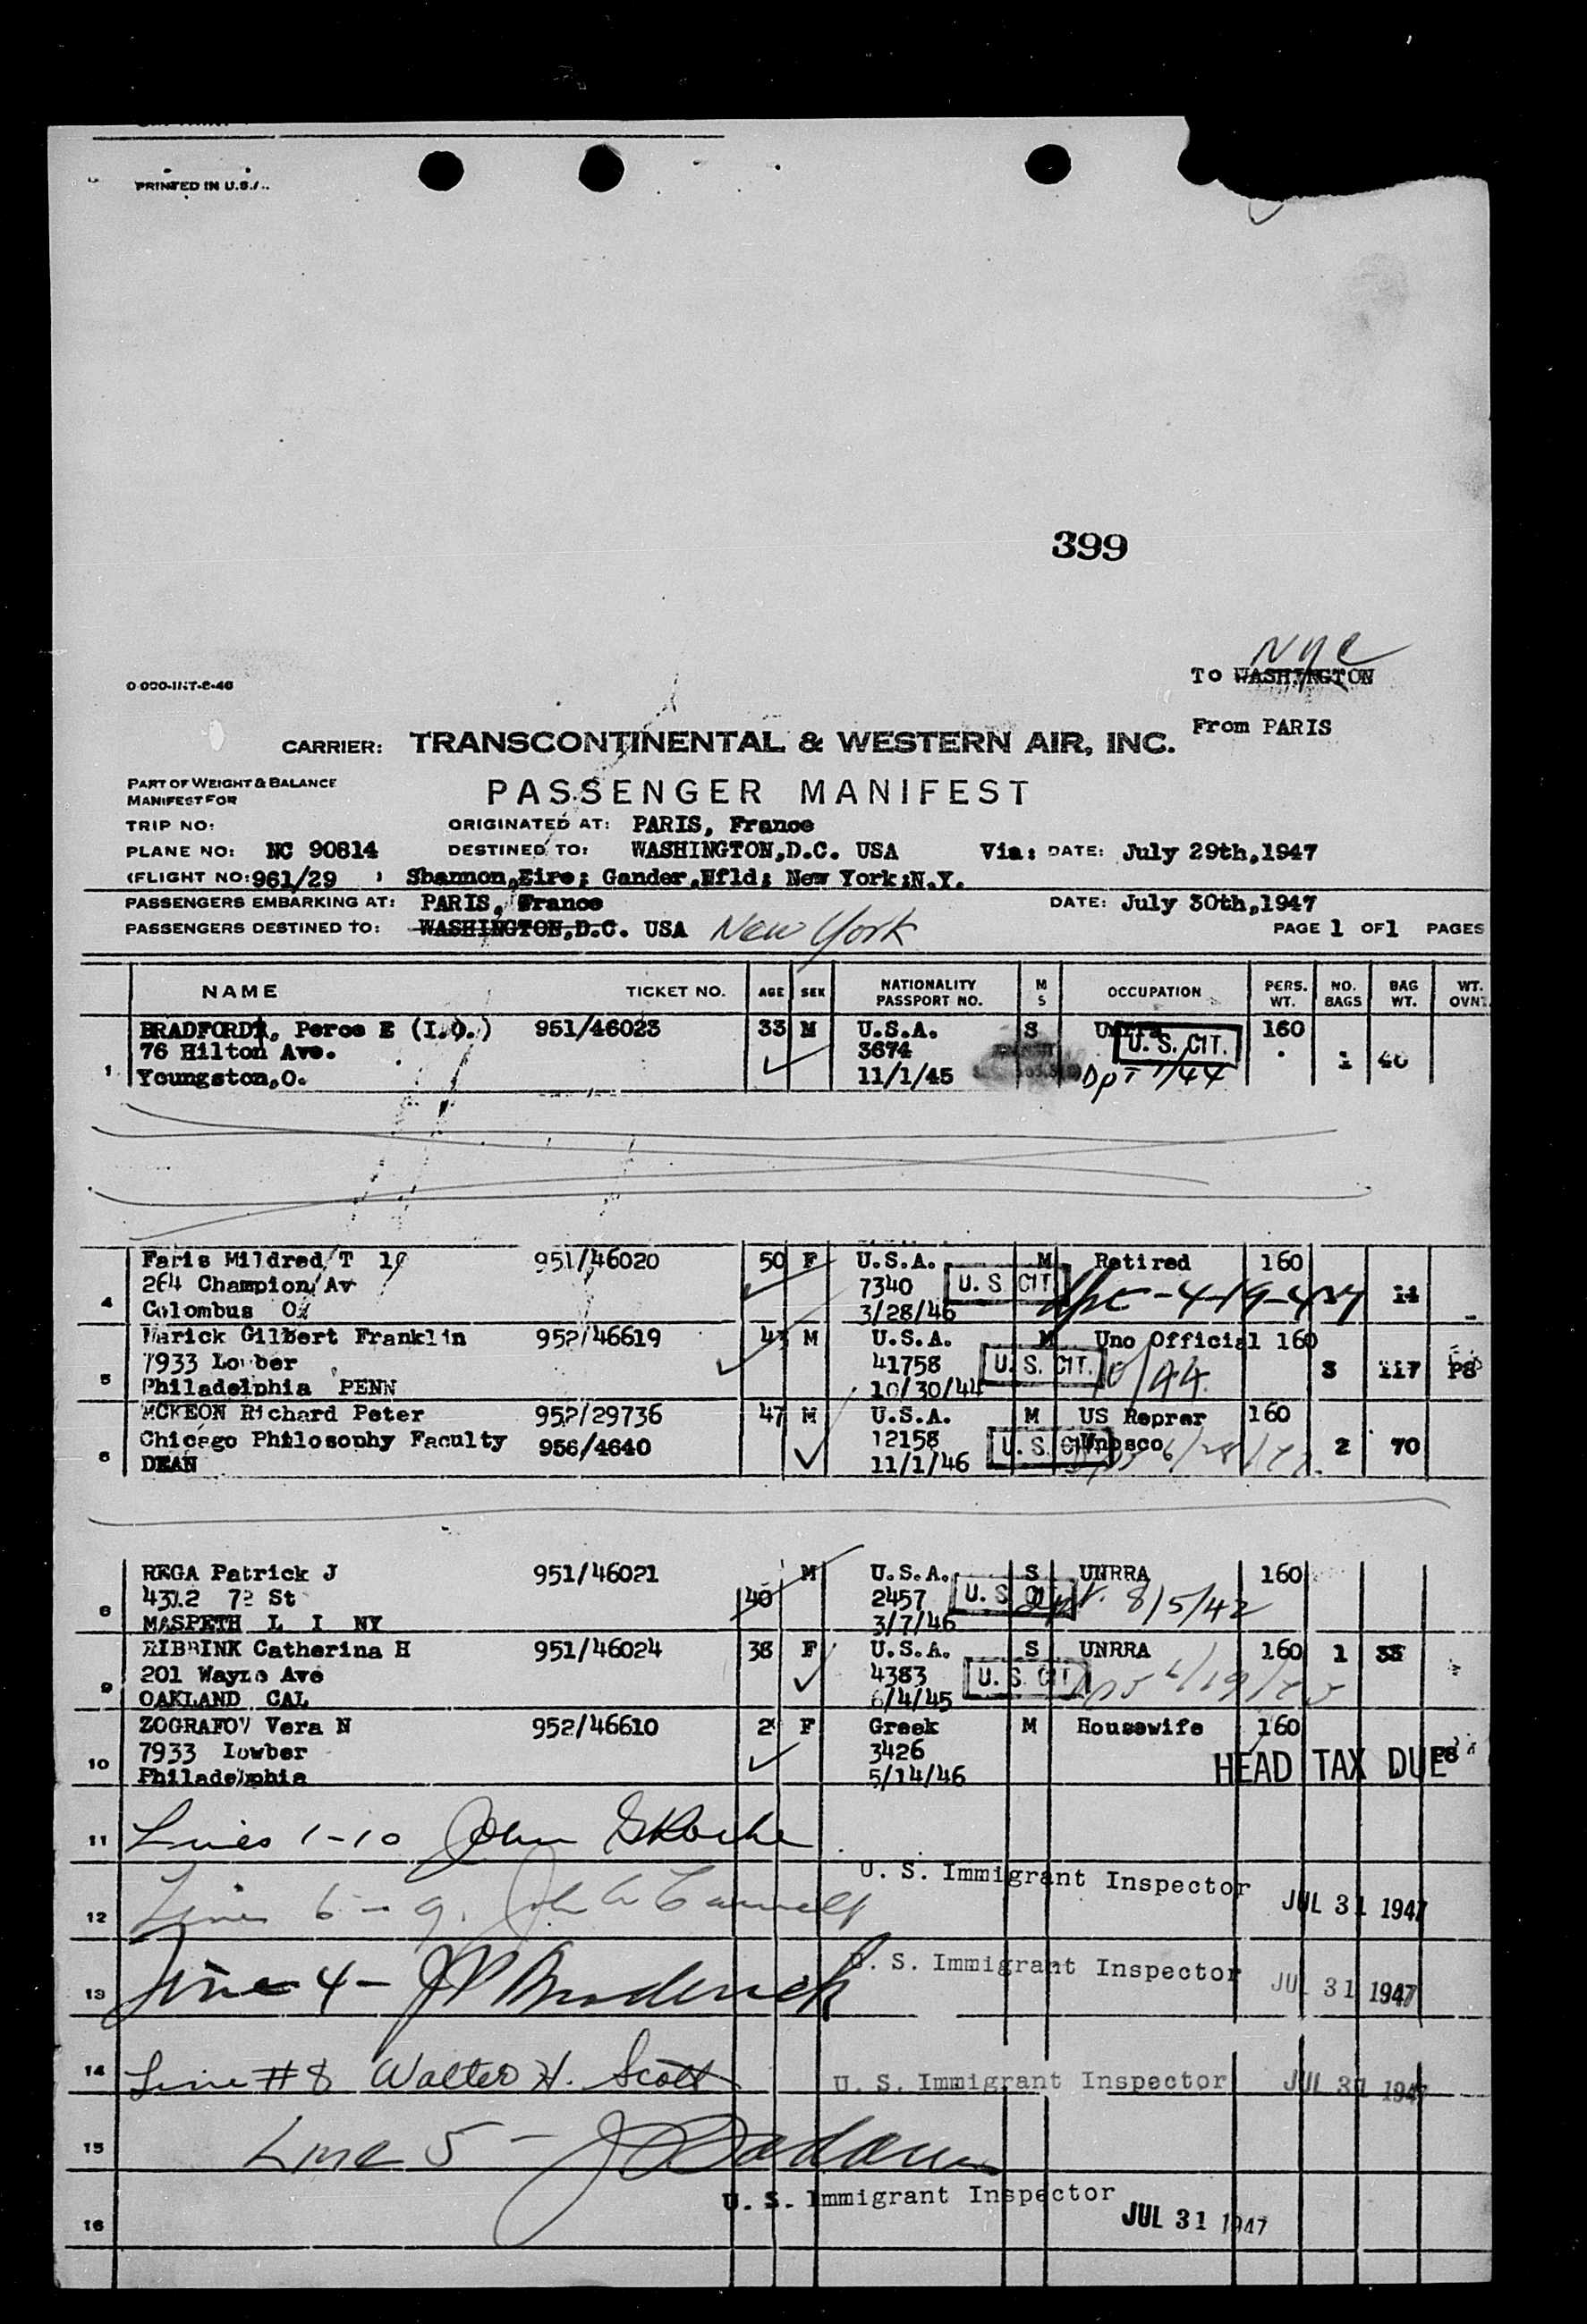 PRINTED IN U.S.A.
399
NYC
To WASHINGTON
0 000-INT-8-46
From PARIS
CARRIER: TRANSCONTINENTAL & WESTERN AIR, INC.
PART OF WEIGHT & BALANCE
MANIFEST FOR
PASSENGER MANIFEST
TRIP NO: ORIGINATED AT: PARIS, France
PLANE NO: NC 90814 DESTINED TO: WASHINGTON,D.C. USA Via: DATE: July 29th,1947
(FLIGHT NO: 961/29 ) Shannon,Eire; Gander,Nfld; New York;N.Y.
PASSENGERS EMBARKING AT: PARIS, France DATE: July 30th,1947
PASSENGERS DESTINED TO: WASHINGTON,D.C. USA New York PAGE 1 OF 1 PAGES
NAME TICKET NO. AGE SEX NATIONALITY PASSPORT NO. M S OCCUPATION PERS. WT. NO. BAGS BAG WT. WT. OVNT.
BRADFORD, Perce E (I.O.) 951/46023 33 M U.S.A. S 160
76 Hilton Ave. 3674 U.S. CIT. 1 40
1 Youngston,O. 11/1/45 Dpt 1/44
Faris Mildred T 951/46020 50 F U.S.A. M Retired 160
264 Champion Av 7340 U.S. CIT. 14
4 Colombus O 3/28/46
Marick Gilbert Franklin 952/46619 M U.S.A. M Uno Official 160
7933 Lowber 41758 U.S. CIT. 10/44 3 117 PS
5 Philadelphia PENN 10/30/44
MCKEON Richard Peter 952/29736 47 M U.S.A. M US Reprer 160
Chicago Philosophy Faculty 956/4640 12158 U.S. CIT. Unesco 2 70
6 DEAN 11/1/46
REGA Patrick J 951/46021 M U.S.A. S UNRRA 160
4312 72 St 40 2457 U.S. CIT. 8/5/42
8 MASPETH L I NY 3/7/46
RIBBINK Catherina H 951/46024 38 F U.S.A. S UNRRA 160 1
201 Wayne Ave 4383 U.S. CIT.
9 OAKLAND CAL 6/4/45
ZOGRAFOV Vera N 952/46610 F Greek M Housewife 160
7933 Lowber 3426 HEAD TAX DUE
10 Philadelphia 5/14/46
11 Lines 1-10 John
U. S. Immigrant Inspector
12 Lines 6-9. John JUL 31 1947
U. S. Immigrant Inspector
13 Line 4 - Broderick JUL 31 1947
14 Line #8 Walter H. Scott U. S. Immigrant Inspector JUL 31 1947
15 Line 5 -
U. S. Immigrant Inspector
16 JUL 31 1947